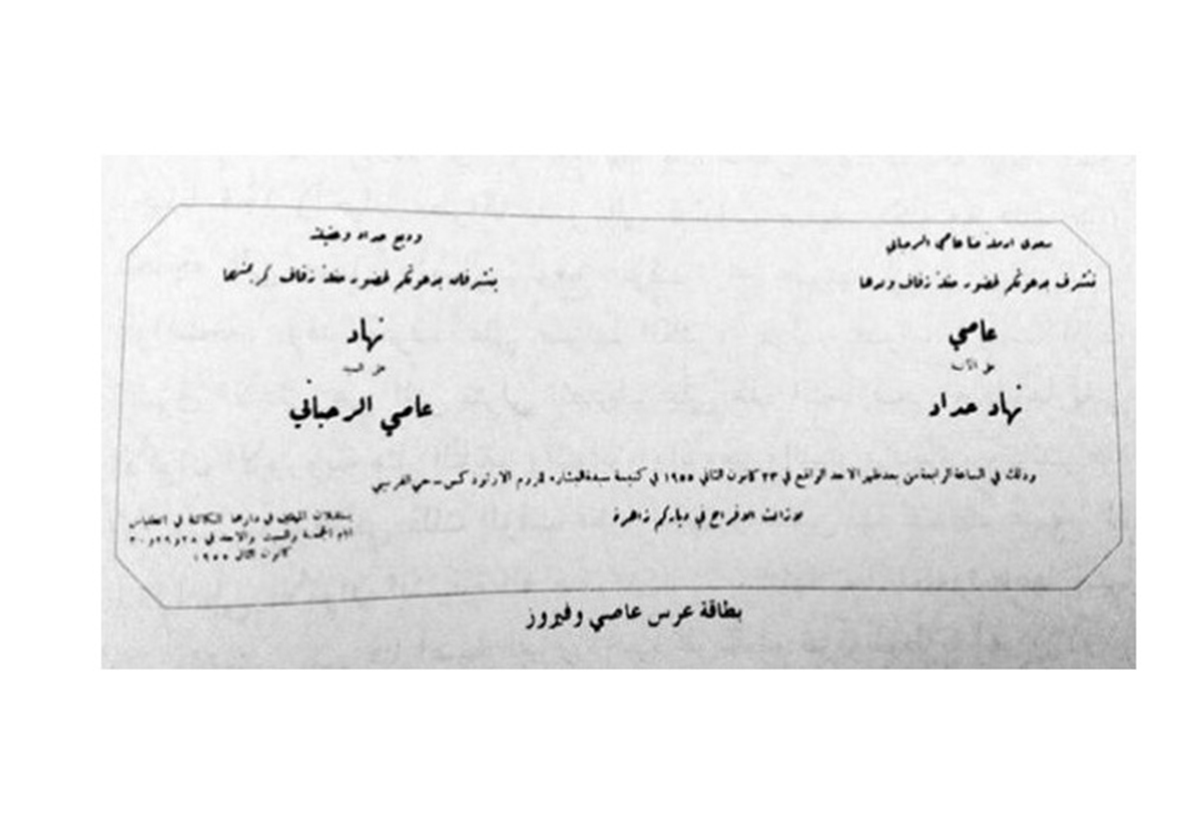 سعدى ارملة حنا عاصي الرحباني
تتشرف بدعوتكم لحضور حفلة زفاف ولدها
عاصي
على الآنسة
نهاد حداد
وديع حداد وعقيلته
يتشرفان بدعوتكم لحضور حفلة زفاف كريمتهما
نهاد
على السيد
عاصي الرحباني
وذلك في الساعة الرابعة من بعد ظهر الاحد الواقع في ٢٣ كانون الثاني ١٩٥٥ في كنيسة سيدة البشارة للروم الارثوذكس - حي الفرنيني
لا زالت الافراح في دياركم زاهرة
يستقبلان المهنئين في دارهما الكائنة في انطلياس
ايام الجمعة والسبت والاحد في ٢٨ و٢٩ و٣٠
كانون الثاني ١٩٥٥
بطاقة عرس عاصي وفيروز